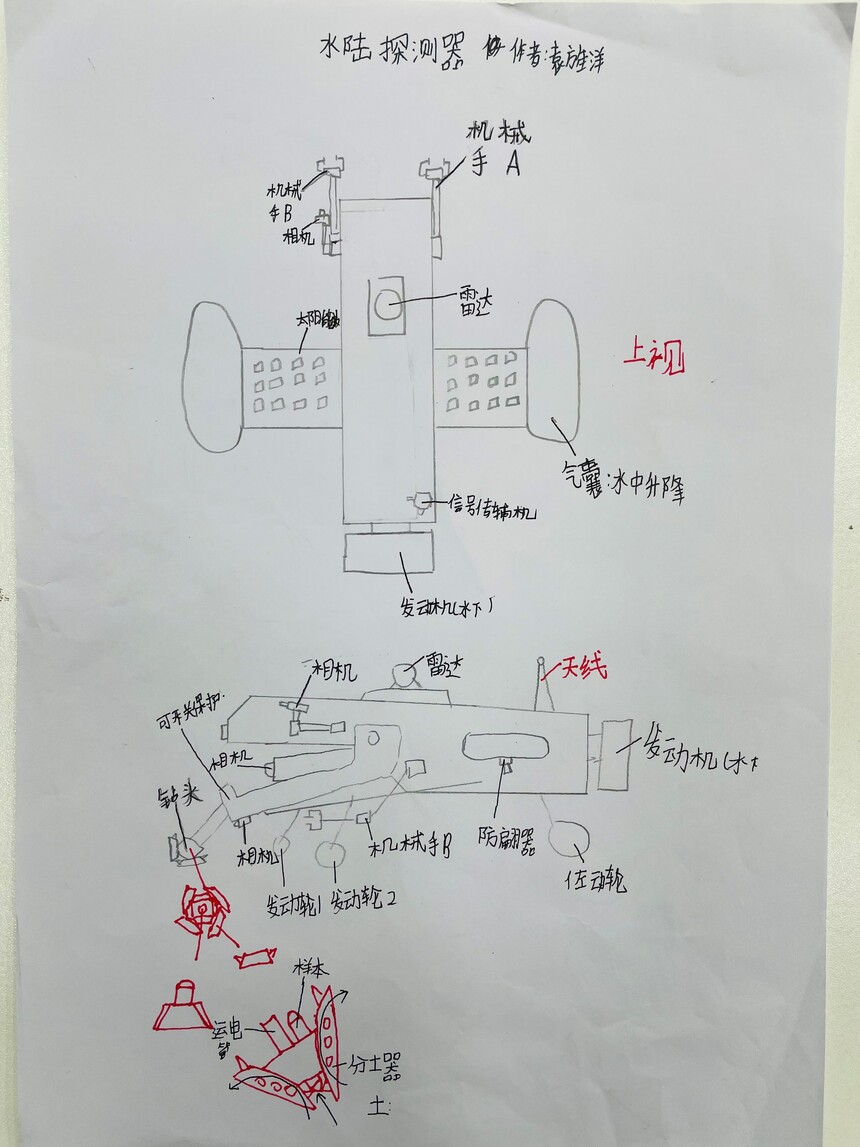 水陆探测器 作者:袁
机械
手 A
机械
手B
相机
雷达
太阳能
上视
气囊:水中升降
信号传输机
发动机(水下)
相机
雷达
天线
可开关保护
相机
发动机(水下
钻头
相机
机械手B
防翩器
佐动轮
发动轮1
发动轮2
样本
运电
分土器
土: